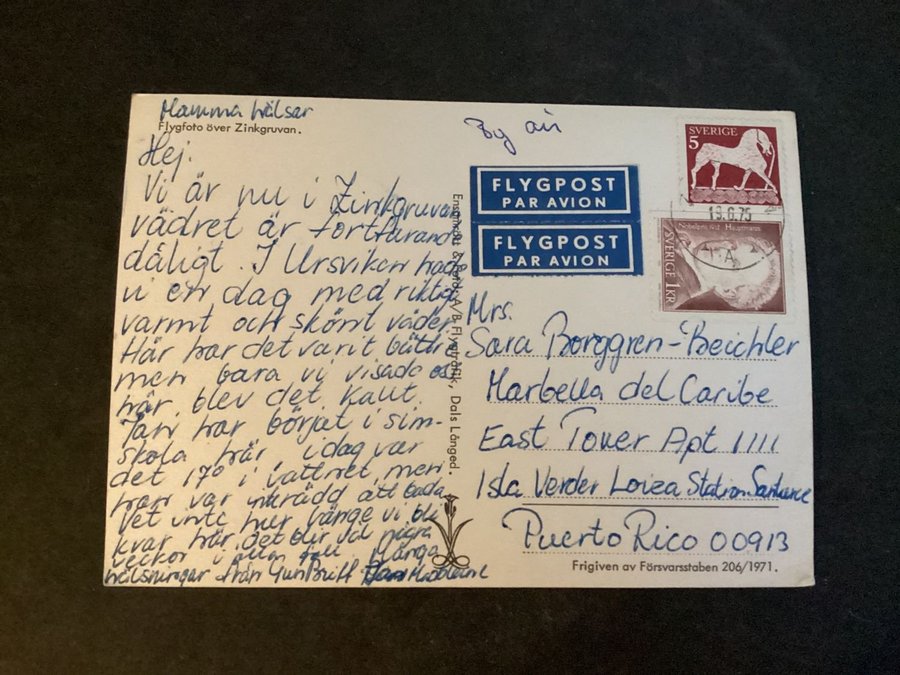 Mamma hälsar
Flygfoto över Zinkgruvan.
Hej.
Vi är nu i Zinkgruvan
vädret är fortfarande
dåligt. I Ursviken hade
vi en dag med riktigt
varmt och skönt väder.
Här har det varit bättre
men bara vi visade oss
här blev det kallt.
har börjat i sim-
skola här idag var
det 17° i vattnet men
han var inte rädd att bada
Vet inte hur länge vi blir
kvar här, det blir väl några
veckor i alla fall. Många
hälsningar från GunBritt
By air
FLYGPOST
PAR AVION
FLYGPOST
PAR AVION
SVERIGE
5
19.6.75
Nobelpris 1912 Hauptmann
SVERIGE 1KR
Ensamrätt & A/B Flygtrafik, Dals Långed.
Mrs.
Sara Borggren-Beichler
Marbella del Caribe
East Tower Apt 1111
Isla Verder Loiza Station Santurce
Puerto Rico 00913
Frigiven av Försvarsstaben 206/1971.